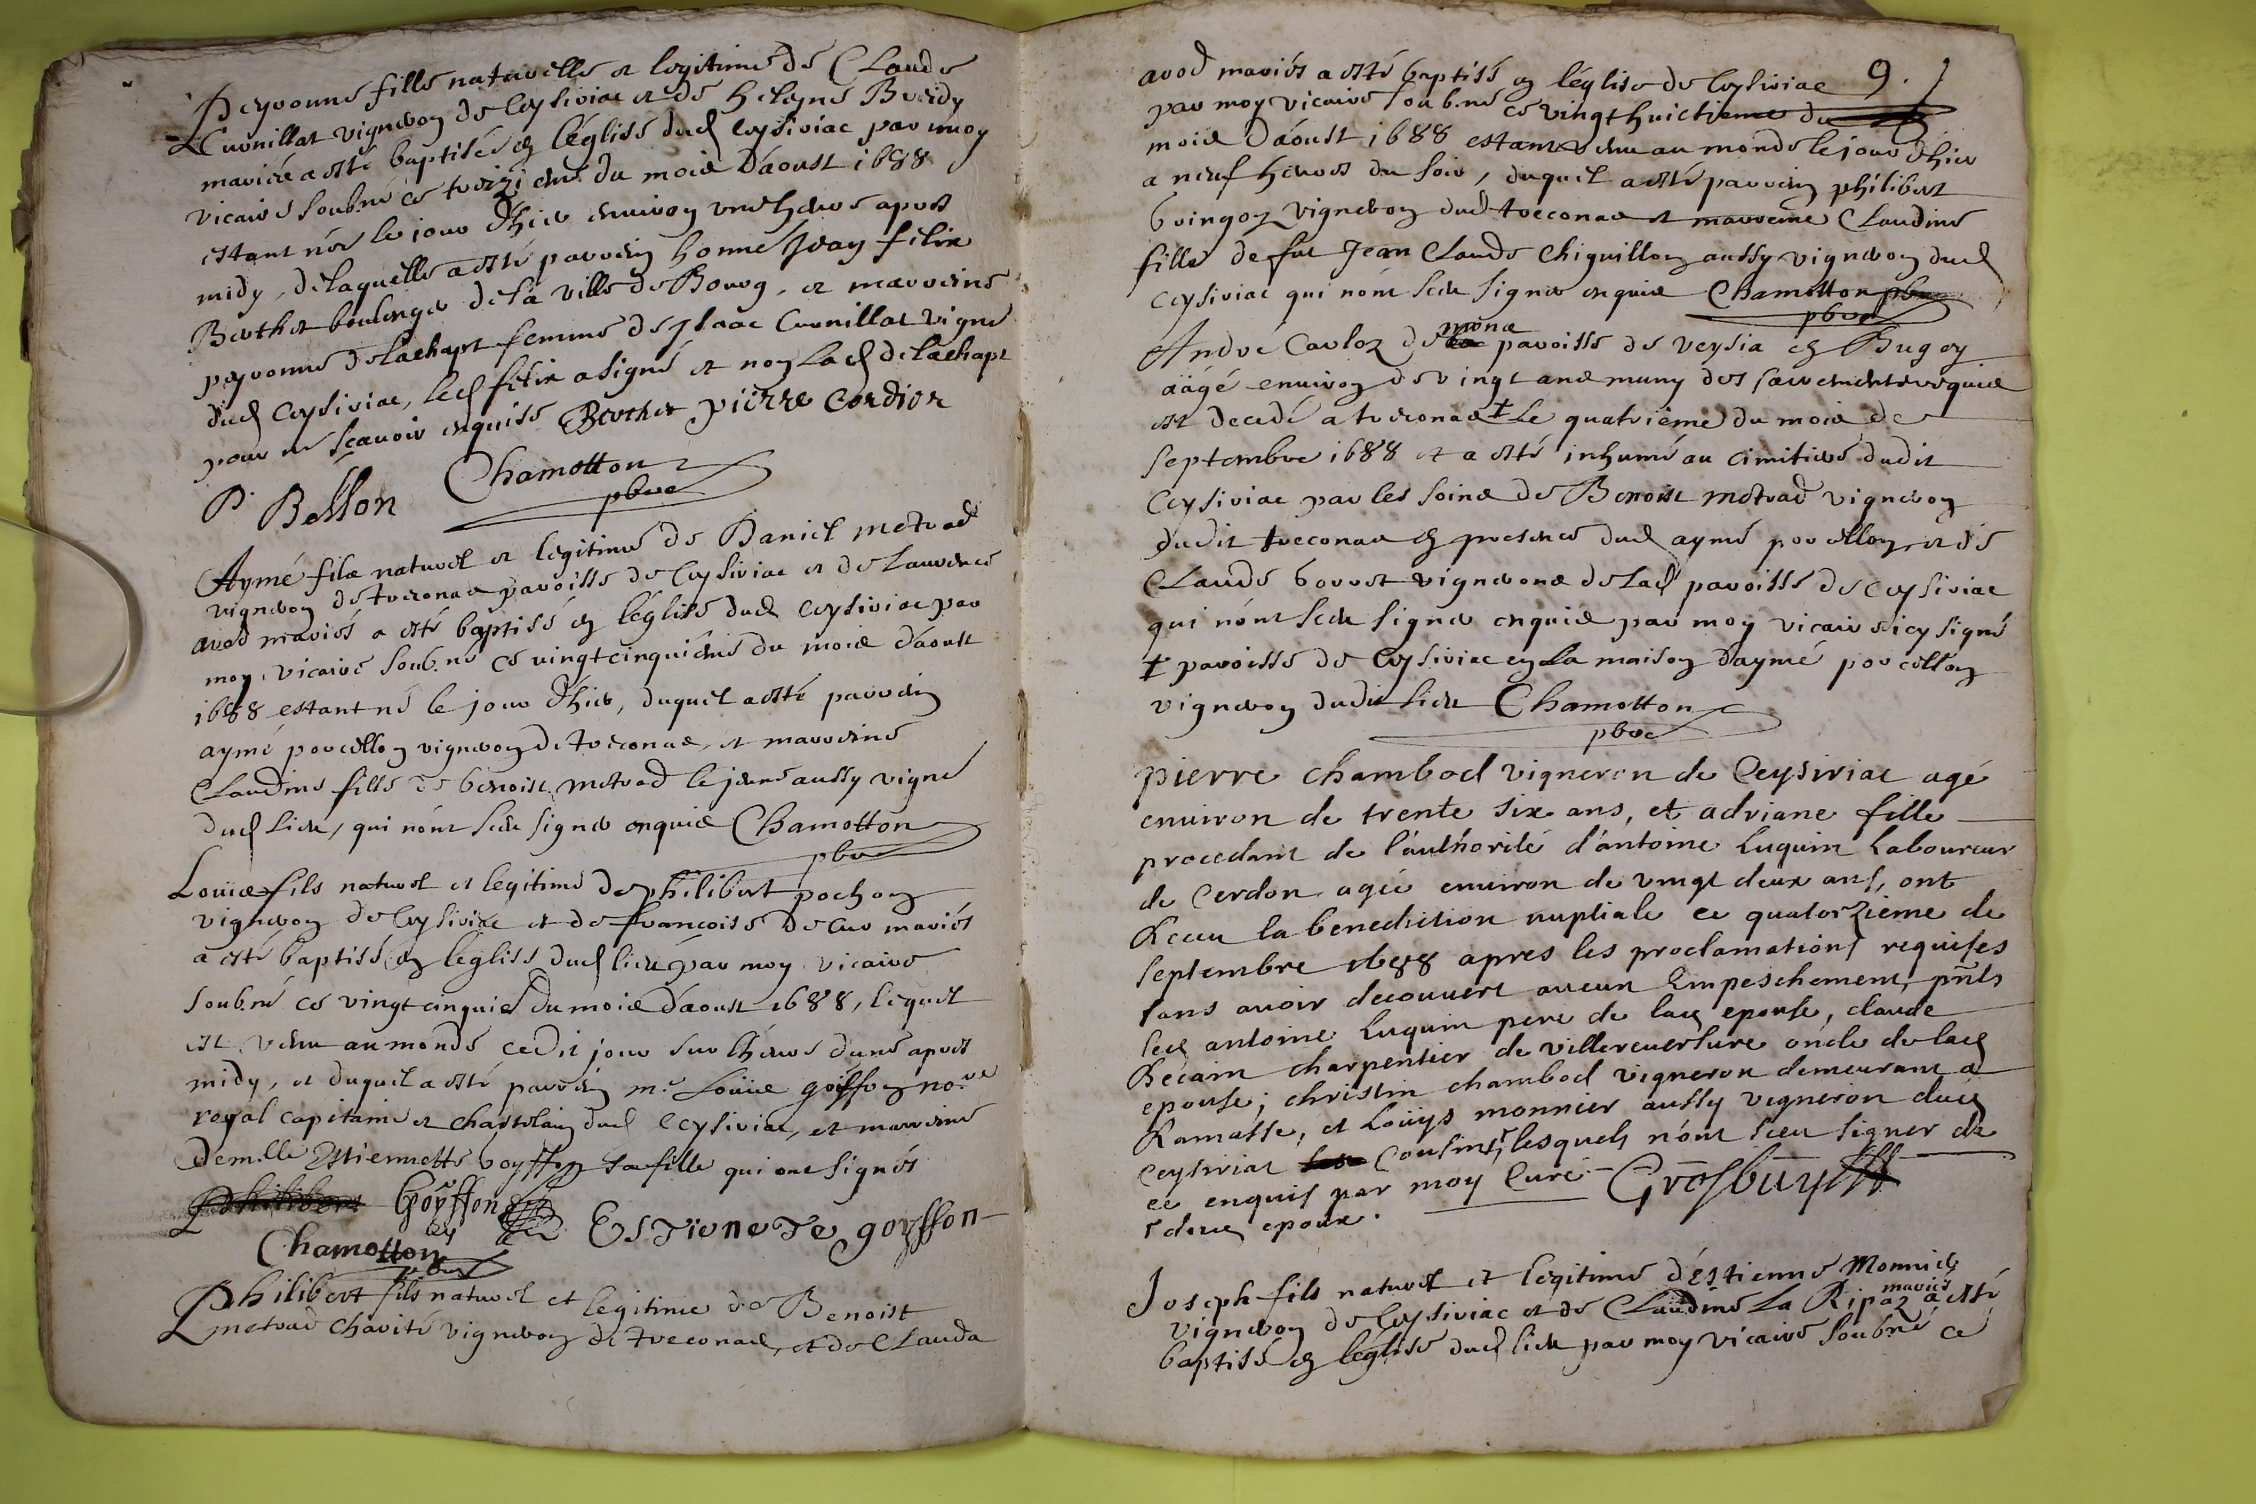 Peyronne fille naturelle et legitime de Claude
Cuvnillat vigneron de Ceysiriac et de Heleyne
mariés a esté baptisée en léglise dud Ceysiriac par moy
vicaire soub.né ce treizieme du mois d'aoust 1688
estant née le jour d'hier environ une heure apres
midy, de laquelle a esté parrein honne Jean felix
Berthet boulenger de la ville de Bourg, et marreine
peyronne delachapt femme de Isaac Cuvnillat vigne
dud Ceysiriac, led felix a signé et non lad delachapt
pour ne sçavoir enquise Berthet pierre Cordier
P. Bellon Chamotton
pbre
Aymé fils naturel et legitime de Daniel metrad
vigneron de treconas paroisse de Ceysiriac et de Laurence
avod mariés a esté baptisé en léglise dud Ceysiriac par
moy vicaire soub.né ce vingtcinquieme du mois d'aoust
1688 estant né le jour d'hier, duquel a esté parrein
aymé porcellon vigneron de treconas, et marreine
Claudine fille de benoist metrad le jeune aussy vigne
dud lieu, qui n'ont sceu signer enquis Chamotton
pbre
Louis fils naturel et legitime de philibert pochon
vigneron de Ceysiriac et de francoise decur mariés
a esté baptisé en leglise dud lieu par moy vicaire
soub.né ce vingtcinquie du mois d'aoust 1688, lequel
est venu au monde cedit jour sur l'heure d'une apres
midy, et duquel a esté parrein m.e Louis goiffon no.re
royal capitaine et chastelain dud Ceysiriac, et marreine
dem.lle Estiennette goyffon sa fille qui ont signés
Philibert Goÿffon Estienete goyffon
Chamotton
pbre
Philibert fils naturel et legitime de Benoist
metrad charité vigneron de treconas, et de Clauda
avod mariés a esté baptisé en léglise de Ceysiriac 9.
par moy vicaire soub.né ce vingt huictieme du
mois d'aoust 1688 estant venu au monde le jour d'hier
a neuf heures du soir, duquel a esté parrein philibert
bvingoz vigneron dud treconas et marreine Claudine
fille de fut Jean Claude Chiquillon aussy vigneron dud
Ceysiriac qui n'ont sceu signer enquis Chamotton pbre
pbre
mona
André Carloz de paroisse de veysia en Bugey
aägé environ de vingt ans muny des sacrements requis
est decedé a treconas † le quatrieme du mois de
septembre 1688 et a esté inhumé au cimitiere dudit
Ceysiriac par les soins de Benoist metrad vigneron
dudit treconas en presence dud aymé porcellon et de
Claude borret vignerons de lad paroisse de Ceysiriac
qui n'ont sceu signer enquis par moy vicaire icy signé
† paroisse de Ceysiriac en la maison d'aymé porcellon
vigneron dudit lieu Chamotton
pbre
pierre chambod vigneron de Ceysiriat agé
environ de trente six ans, et adriane fille
procedant de l'authorité d'antoine Luquin Laboureur
de Cerdon agée environ de vingt deux ans, ont
Receu la benediction nuptiale ce quatorzieme de
septembre 1688 apres les proclamations requises
sans avoir decouvert aucun Empeschement, pñts
led antoine Luquin pere de lad epouse, claude
Récam charpentier de villereversure oncle de lad
epouse; christin chambod vigneron demeurant a
Ramasse, et Loüys monnier aussy vigneron dud
Ceysiriat Cousins, lesquels n'ont sceu signer de
ce enquis par moy Curé Grosbuys
dud epoux.
Joseph fils naturel et legitime d'éstienne Monnier
mariés
vigneron de Ceysiriac et de Claudine La Ripaz a esté
baptisé en léglise dud lieu par moy vicaire soub.né ce